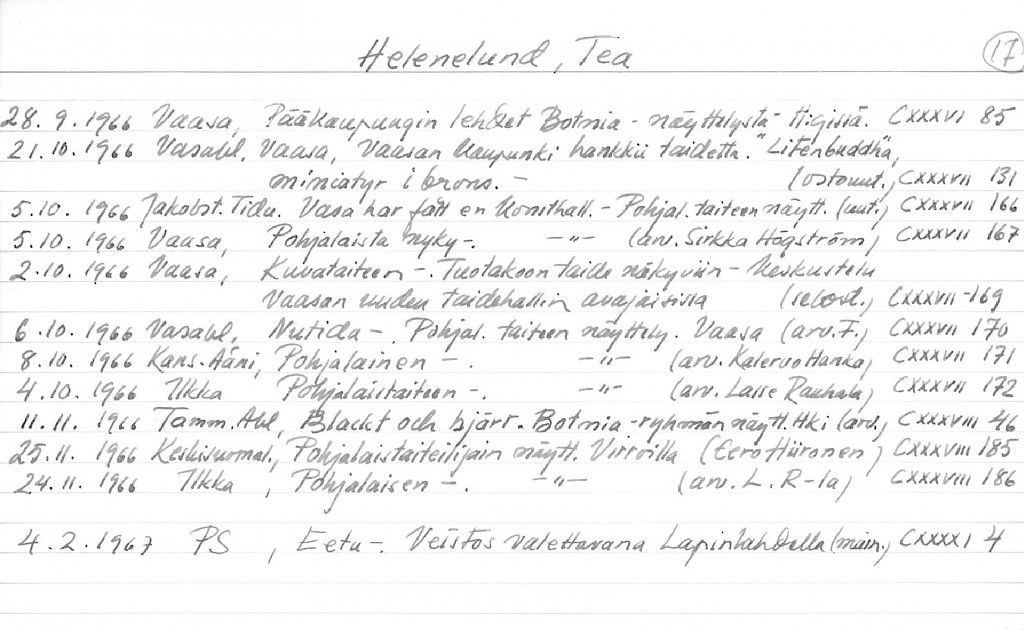 Helenelund, Tea 17
28. 9. 1966 Vaasa, Pääkaupungin lehdet Botnia - näyttelystä H:gissä. CXXXVI 85
21. 10. 1966 Vasabl. Vaasa, Vaasan kaupunki hankkii taidetta. "Litenbuddha",
miniatyr i brons. - (ostouut., CXXXVII 131
5. 10. 1966 Jakobst. Tidn. Vasa har fått en Konsthall. - Pohjal. taiteen näytt. (uut.) CXXXVII 166
5. 10. 1966 Vaasa, Pohjalaista nyky -. - " - (arv. Sirkka Högström) CXXXVII 167
2. 10. 1966 Vaasa, Kuvataiteen -. Tuotakoon taide näkyviin - Keskustelu
Vaasan uuden taidehallin avajaisissa (selost.) CXXXVII - 169
6. 10. 1966 Vasabl. Nutida -. Pohjal. taiteen näyttely. Vaasa (arv. F.) CXXXVII 170
8. 10. 1966 Kans. Ääni, Pohjalainen -. - " - (arv. Kalervo Hanka) CXXXVII 171
4. 10. 1966 Ilkka Pohjalaistaiteen -. - " - (arv. Lasse Rauhala) CXXXVII 172
11. 11. 1966 Tamm. Abl, Blackt och bjärt. Botnia - ryhmän näytt. Hki (arv.) CXXXVIII 46
25. 11. 1966 Keskisuomal., Pohjalaistaiteilijain näytt. Virroilla (Eero Hiironen) CXXXVIII 185
24. 11. 1966 Ilkka, Pohjalaisen -. - " - (arv. L. R-la) CXXXVIII 186
4. 2. 1967 PS, Eetu -. Veistos valettavana Lapinlahdella (main.) CXXXXI 4